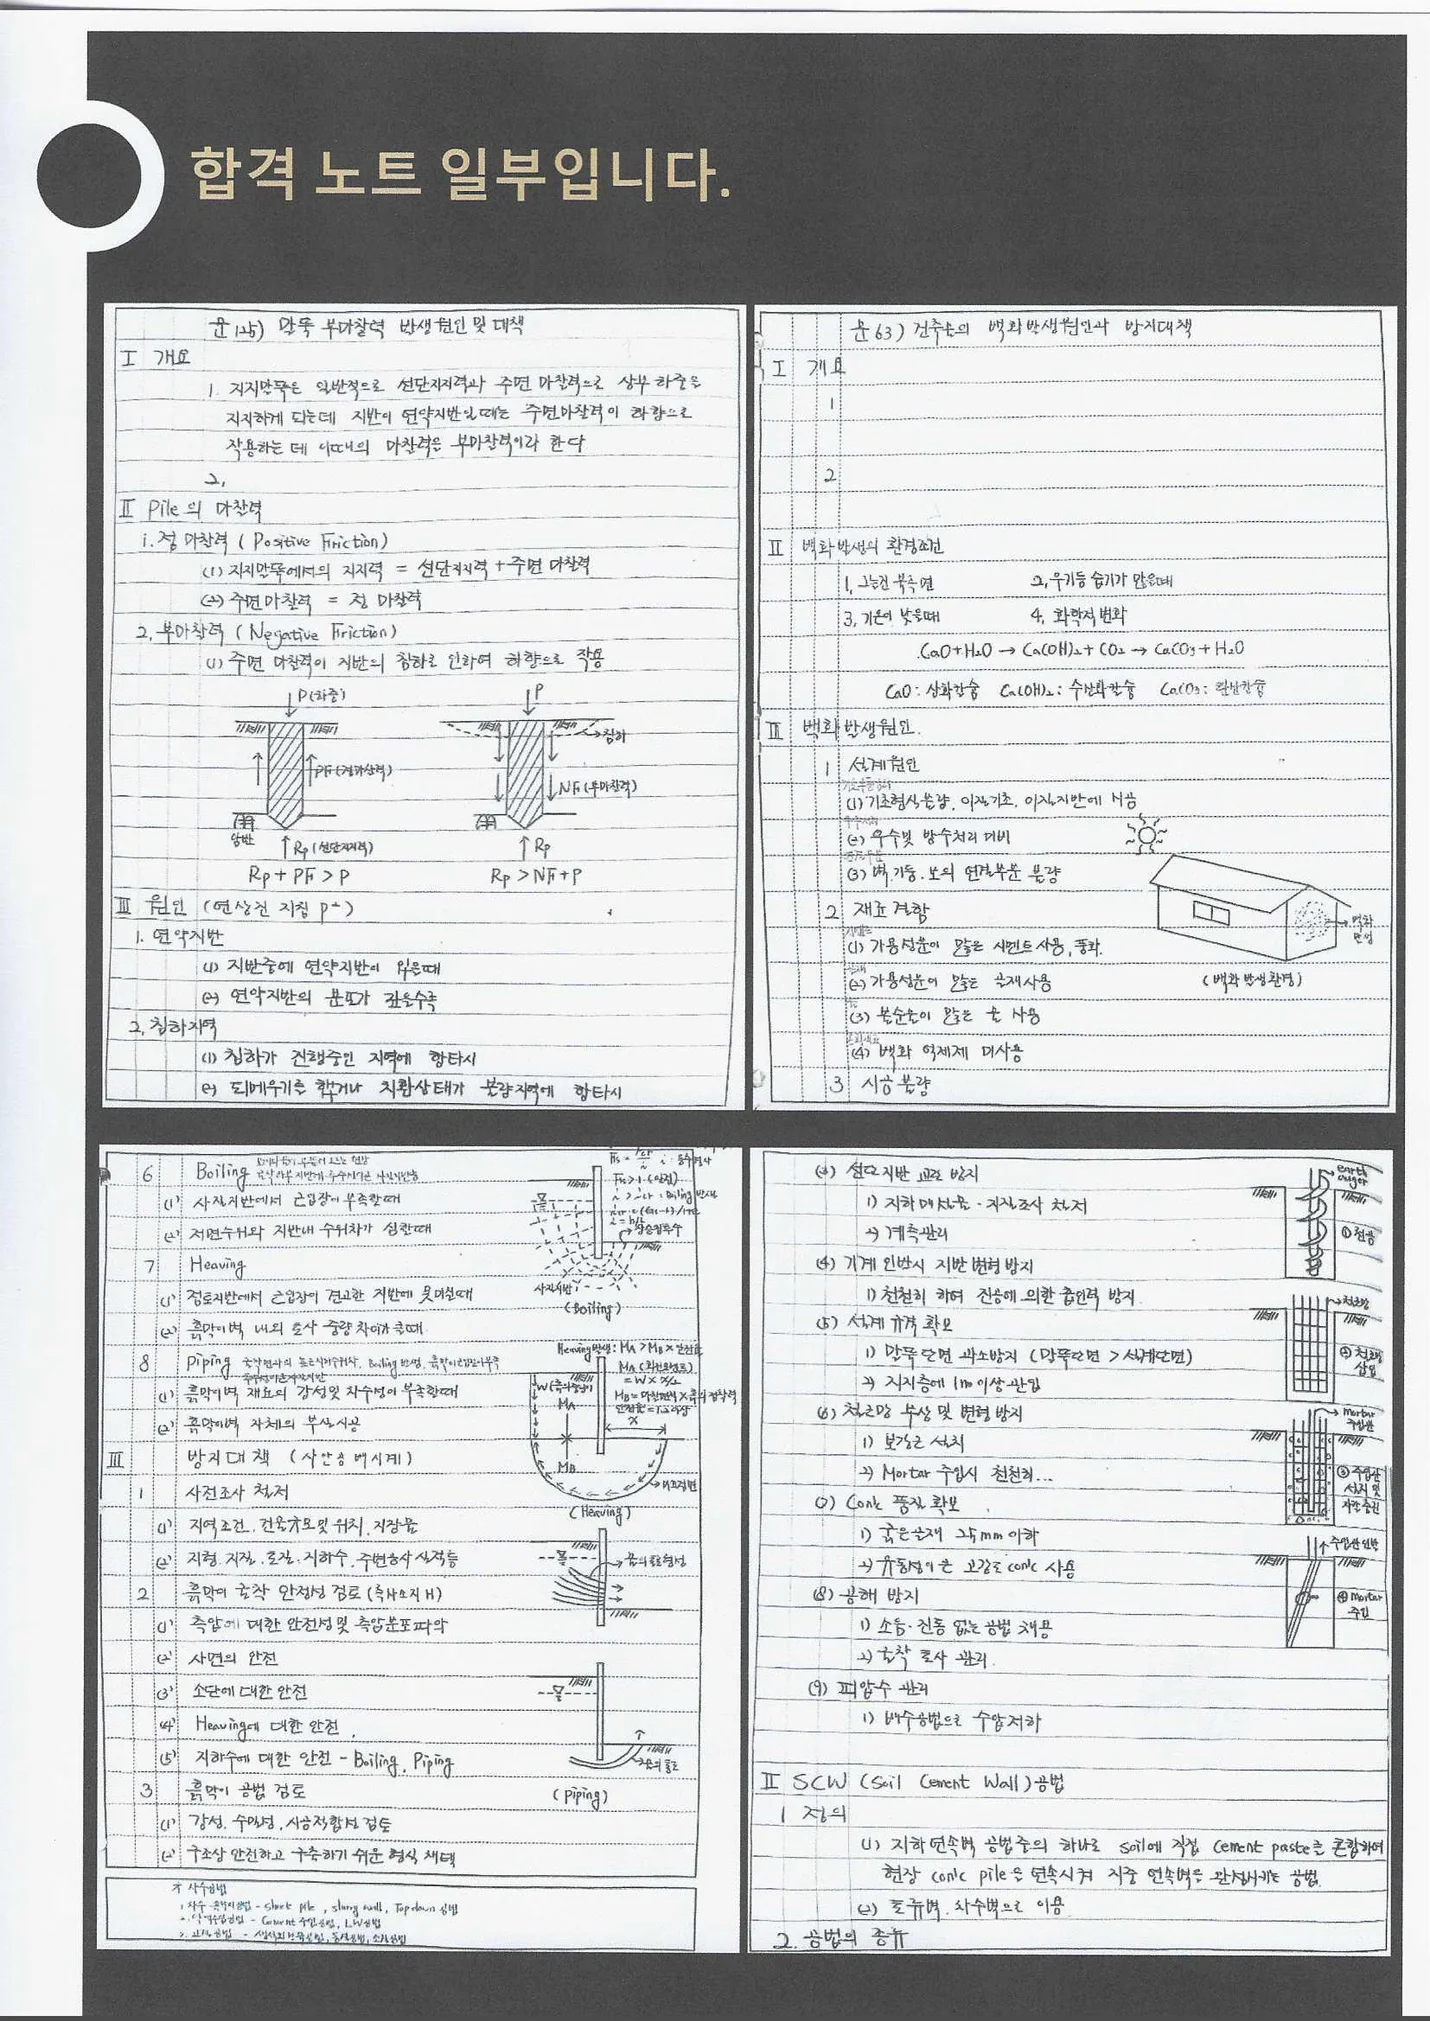 합격 노트 일부입니다.
문125) 말뚝 부마찰력 발생원인 및 대책
I 개요
1. 지지말뚝은 일반적으로 선단지지력과 주면 마찰력으로 상부 하중을
지지하게 되는데 지반이 연약지반일때는 주면마찰력이 하향으로
작용하는데 이때의 마찰력을 부마찰력이라 한다
2,
II Pile의 마찰력
1. 정 마찰력 ( Positive Friction)
(1) 지지말뚝에서의 지지력 = 선단지지력 + 주면 마찰력
(2) 주면마찰력 = 정 마찰력
2, 부마찰력 ( Negative Friction)
(1) 주면 마찰력이 지반의 침하로 인하여 하향으로 작용
P(하중)
P
침하
PF(정마찰력)
NF(부마찰력)
암반
Rp(선단지지력)
Rp
Rp + PF > P
Rp > NF + P
III 원인
1. 연약지반
(1) 지반중에 연약지반이 있을때
(2) 연약지반의 분포가 깊을수록
2. 침하지역
(1) 침하가 진행중인 지역에 항타시
(2) 되메우기를 했거나 치환상태가 불량지역에 항타시
문63) 건축물의 백화발생원인과 방지대책
I 개요
1
2
II 백화발생의 환경조건
1, 그늘진 북측면
2, 우기등 습기가 많을때
3, 기온이 낮을때
4, 화학적변화
CaO+H₂O → Ca(OH)₂+ CO₂ → CaCO₃ + H₂O
CaO : 산화칼슘 Ca(OH)₂ : 수산화칼슘 CaCO₃ : 탄산칼슘
III 백화발생원인.
1 설계원인
(1) 기초형상불량, 이질기초, 이질지반에 시공
(2) 우수및 방수처리 미비
(3) 벽, 기둥, 보의 연결부분 불량
2 재료결함
(1) 가용성분이 많은 시멘트사용, 풍화.
(2) 가용성분이 많은 골재사용
(3) 불순물이 많은 물 사용
(4) 백화 억제제 미사용
백화
(백화발생환경)
3 시공불량
6 Boiling
(1) 사질지반에서 근입장이 부족할때
(2) 저면수위와 지반내 수위차가 심할때
사질지반
(Boiling)
7 Heaving
(1) 점토지반에서 근입장이 견고한 지반에 못미칠때
(2) 흙막이벽 내외 토사 중량차이가 클때
8 Piping
(1) 흙막이벽 재료의 강성및 차수성이 부족할때
(2) 흙막이벽 자체의 부실시공
MA
MB
(Heaving)
III 방지대책
1 사전조사 철저
(1) 지역조건, 건물규모및 위치, 지장물
(2) 지형, 지질, 토질, 지하수, 주변공사 실적등
2 흙막이 굴착 안정성 검토
(1) 측압에 대한 안전성및 측압분포파악
(2) 사면의 안전
(3) 소단에 대한 안전
(4) Heaving에 대한 안전
(5) 지하수에 대한 안전 - Boiling, Piping
(Piping)
3 흙막이 공법 검토
(1) 강성, 수밀성, 시공적합성 검토
(2) 구조상 안전하고 구축하기 쉬운 형식 채택
(3) 선단지반 교란 방지
1) 지하매설물·지질조사 철저
2) 계측관리
(4) 기계 인발시 지반 변형 방지
1) 천천히 하여 진공에 의한 흡인력 방지
(5) 설계 규격 확보
1) 말뚝단면 과소방지 (말뚝단면 > 설계단면)
2) 지지층에 1m이상 관입
(6) 철근망 부상 및 변형 방지
1) 보강근 설치
2) Mortar 주입시 천천히...
(7) Conc 품질 확보
1) 굵은골재 25mm 이하
2) 유동성이 큰 고강도 conc 사용
(8) 공해 방지
1) 소음·진동 없는 공법 채용
2) 굴착 토사 관리
(9) 피압수 관리
1) 배수공법으로 수압저하
earth auger
① 천공
철근망
② 철근망 삽입
mortar 주입관
④ mortar 주입
II SCW (Soil Cement Wall) 공법
1 정의
(1) 지하연속벽 공법중의 하나로 soil에 직접 cement paste를 혼합하여
현장 conc pile을 연속시켜 지중 연속벽을 완성시키는 공법.
(2) 토류벽, 차수벽으로 이용
2. 공법의 종류